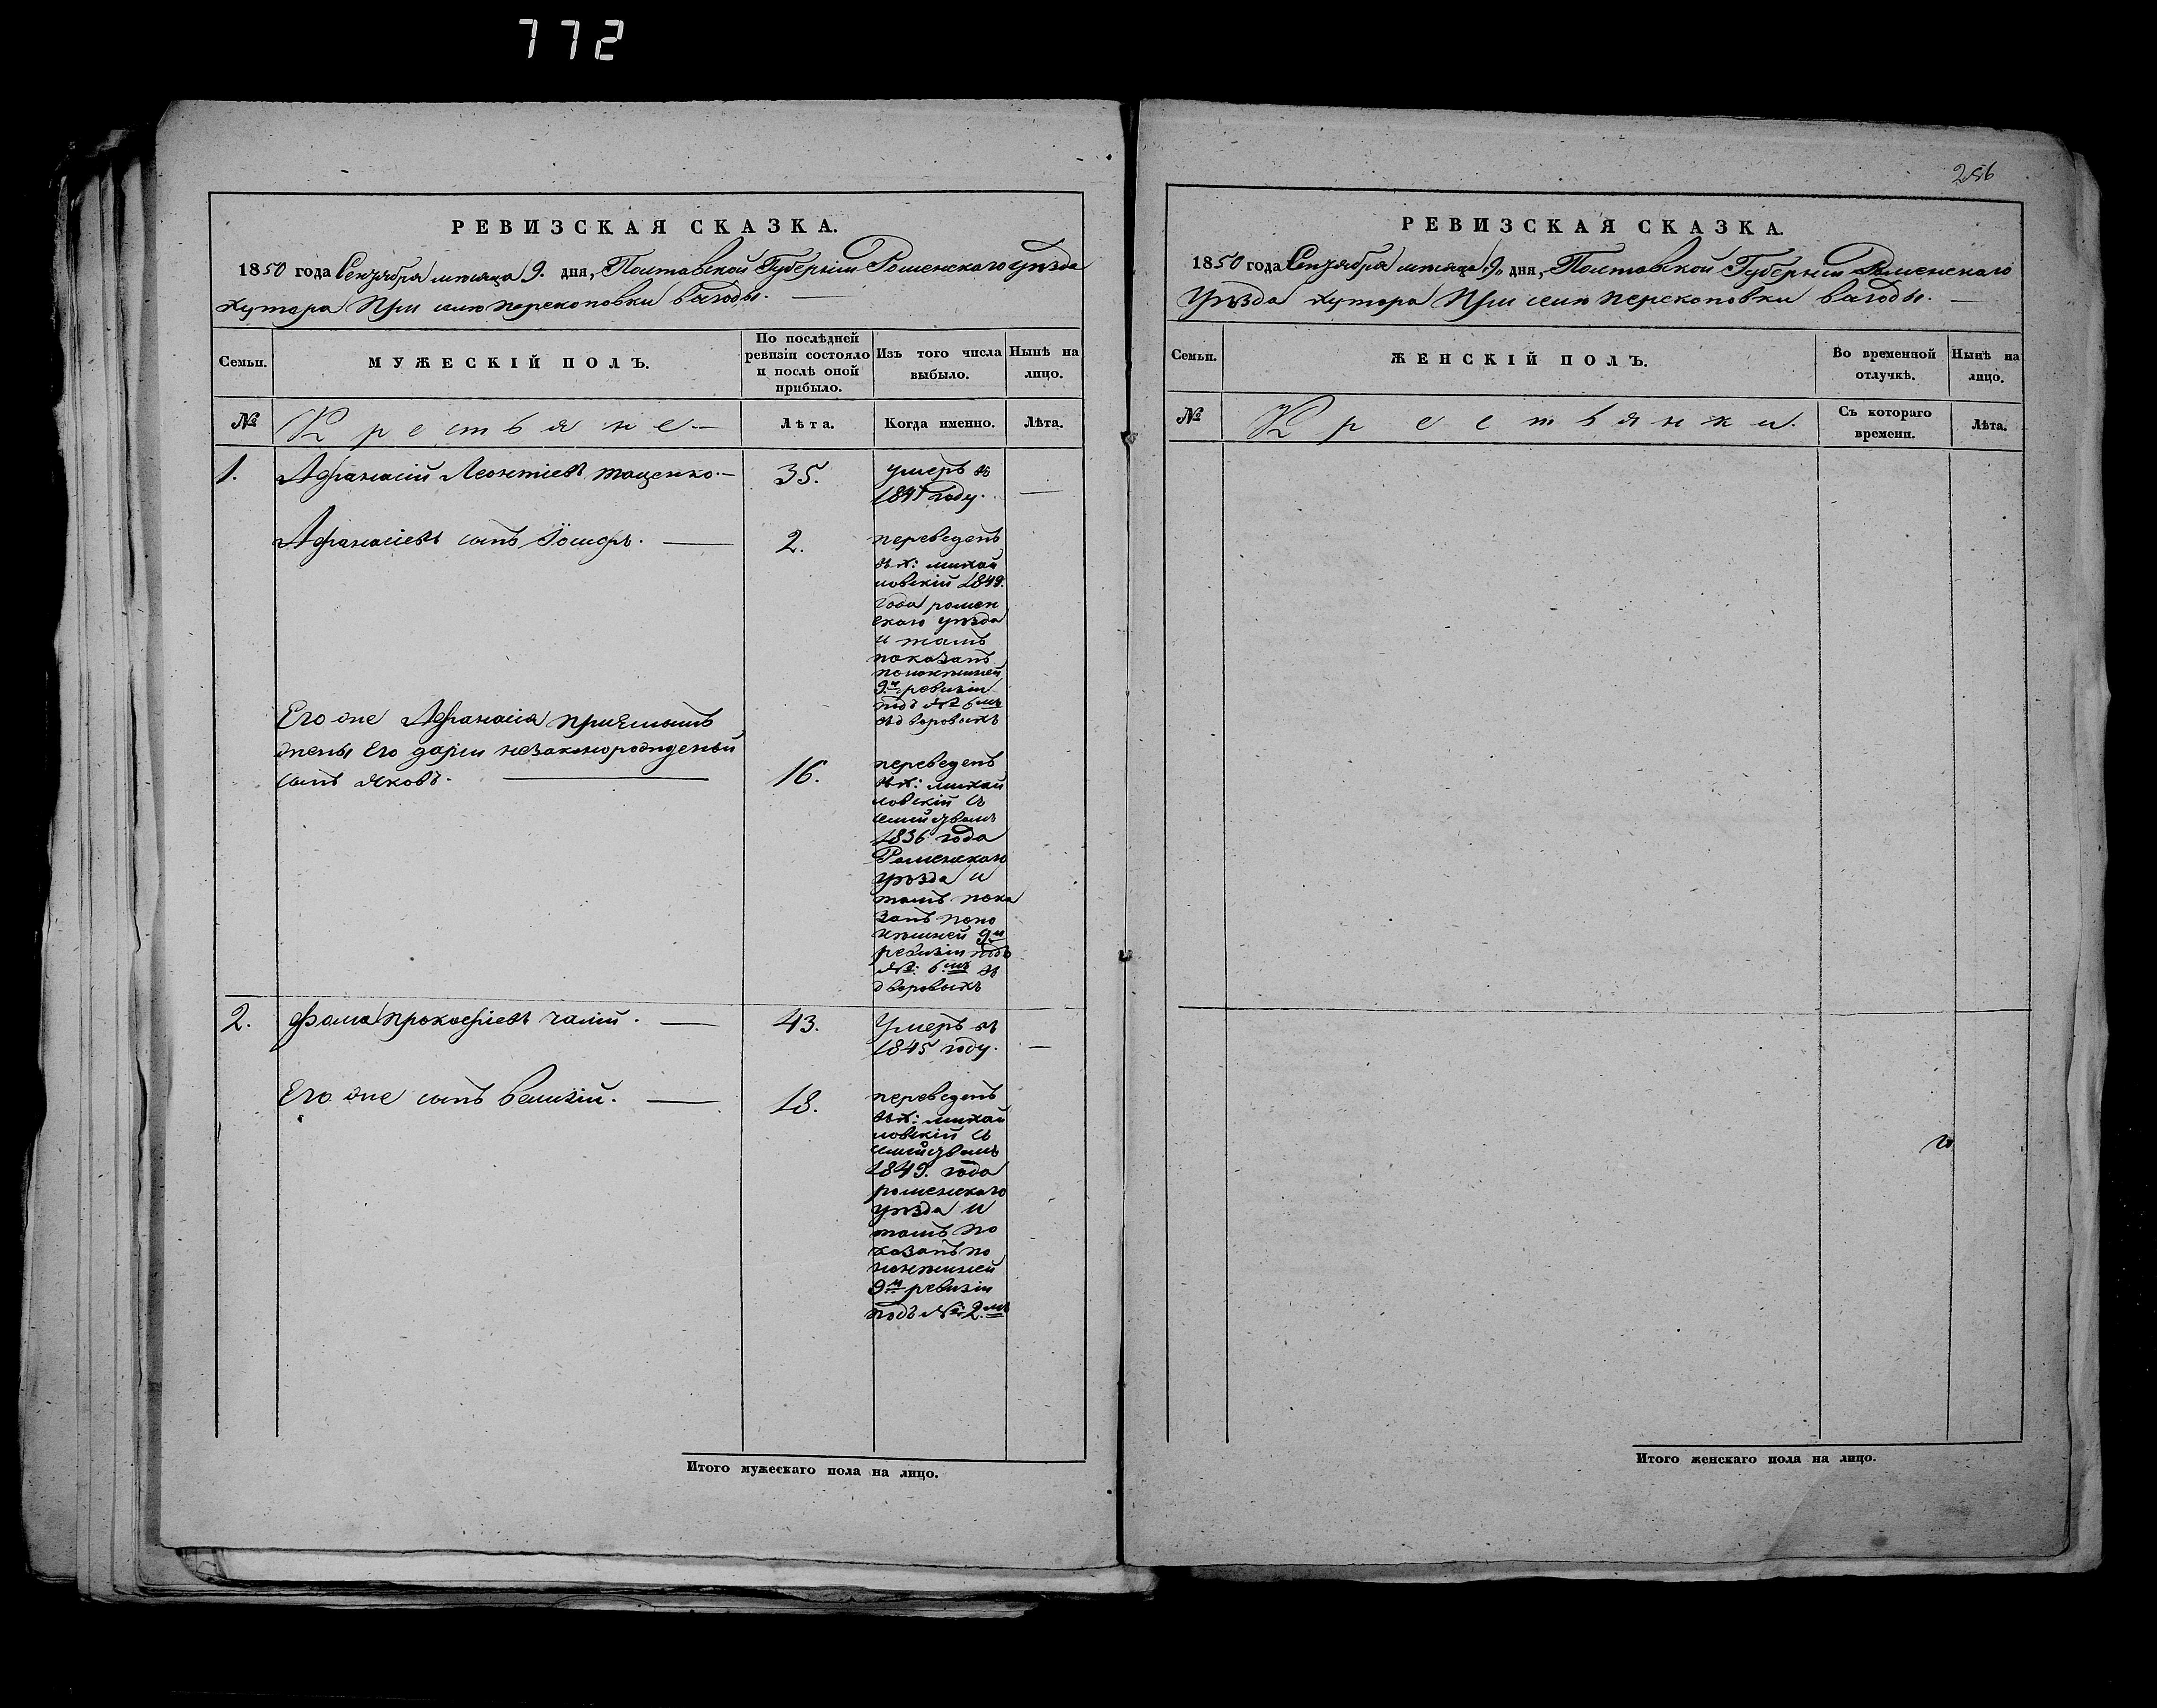 772
РЕВИЗСКАЯ СКАЗКА.
1850 года Сентября месяца 9. дня, Полтавской Губерніи Роменскаго уѣзда
хутора При селѣ Перекоповки
Семьи.
МУЖЕСКІЙ ПОЛЪ.
По послѣдней
ревизіи состояло
и послѣ оной
прибыло.
Изъ того числа
выбыло.
Нынѣ на
лицо.
№
Крестьяне
Лѣта.
Когда именно.
Лѣта.
1.
Афанасій Леонтіевъ тоценко.
35.
умеръ въ
году.
Афанасіевъ сынъ Іосифъ.
2.
переведенъ
въ х: михай
ловскій 1849.
года ромен
скаго уѣзда
и тамъ
показанъ
по нынѣшней
9й ревизіи
подъ № 6мъ
въ дворовыхъ
Его же Афанасія пріемышъ
жены Его дарьи незаконорожденый
сынъ яковъ.
16.
переведенъ
въ х: михай
ловскій съ
семействомъ
1836 года
Роменскаго
уѣзда и
тамъ пока
занъ по но
нѣшней 9й
ревизіи подъ
№: 6мъ въ
дворовыхъ
2.
Фома прокофіевъ чалій.
43.
Умеръ въ
1845 году.
Его же сынъ василій.
18.
переведенъ
въ х: михай
ловскій съ
семействомъ
1849. года
роменскаго
уѣзда и
тамъ по
казанъ по
нонѣшней
9й ревизіи
подъ №: 2мъ
Итого мужескаго пола на лицо.
256
РЕВИЗСКАЯ СКАЗКА.
1850 года Сентября месяца 9. дня, Полтавской Губерніи Роменскаго
уѣзда хутора При селѣ Перекоповки
Семьи.
ЖЕНСКІЙ ПОЛЪ.
Во временной
отлучкѣ.
Нынѣ на
лицо.
№
Крестьянки.
Съ котораго
времени.
Лѣта.
Итого женскаго пола на лицо.